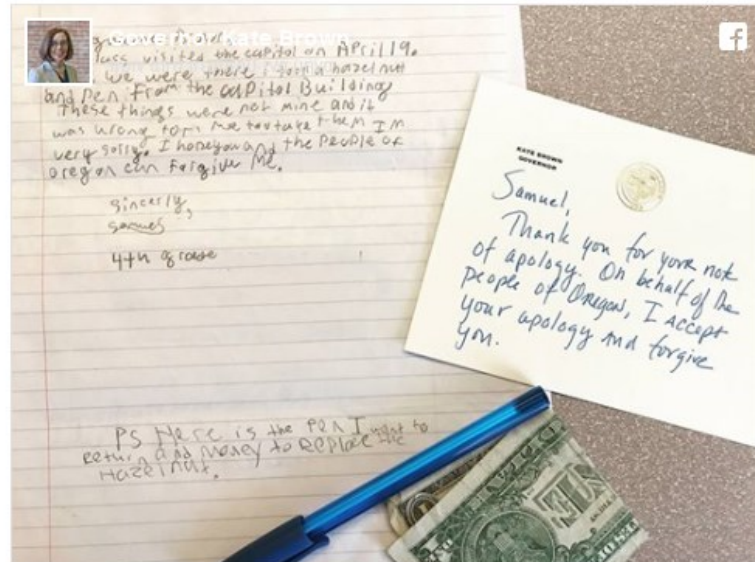 Governor Kate Brown
f
lass visited the capitol on April 19.
we were there I took a hazelnut
and Pen from the capitol Building
These things were not mine and it
was wrong for me to take them I'm
very sorry. I hope you and the People of
oregon can forgive Me.
Sincerly,
Samuel
4th grade
PS Here is the pen I want to
return and Money to Replace the
Hazelnut.
KATE BROWN
GOVERNOR
Samuel,
Thank you for your note
of apology. On behalf of the
people of Oregon, I accept
your apology and forgive
you.
ONE